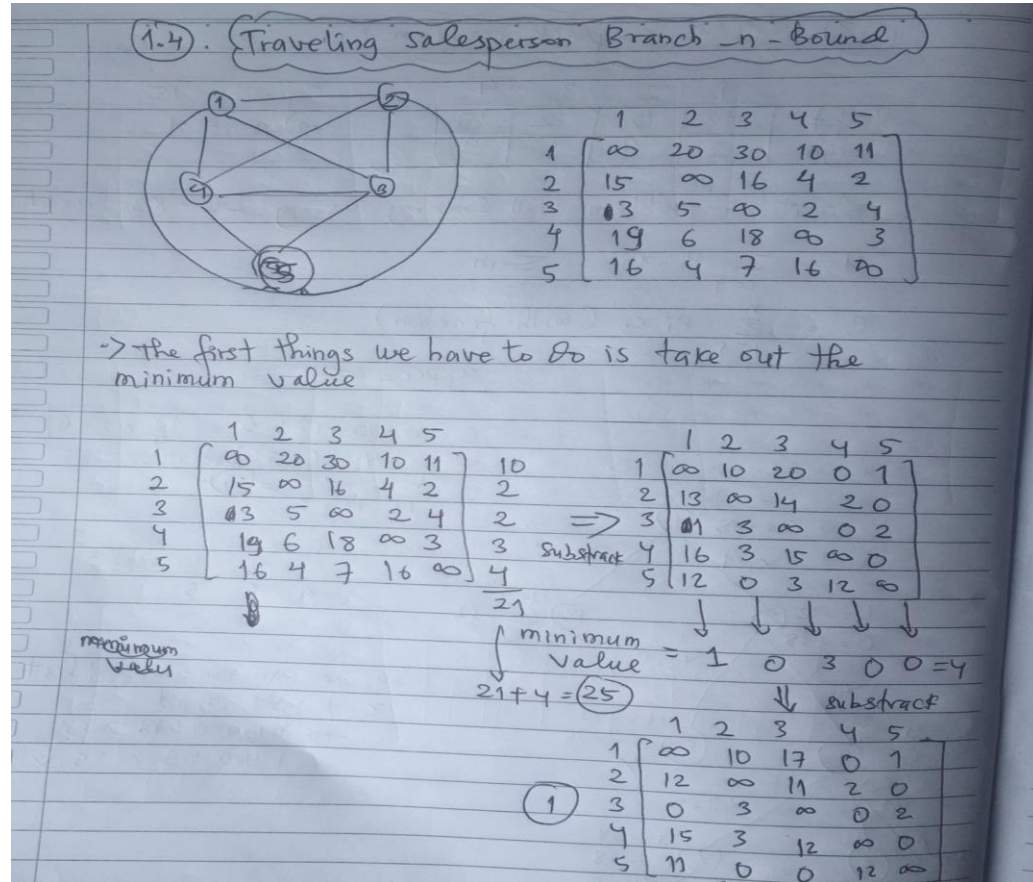 1.4 . Traveling salesperson Branch -n- Bound
1 2
4 3
1 2 3 4 5
1 ∞ 20 30 10 11
2 15 ∞ 16 4 2
3 3 5 ∞ 2 4
4 19 6 18 ∞ 3
5 16 4 7 16 ∞
-> the first things we have to do is take out the
minimum value
1 2 3 4 5
1 ∞ 20 30 10 11 10
2 15 ∞ 16 4 2 2
3 3 5 ∞ 2 4 2
4 19 6 18 ∞ 3 3
5 16 4 7 16 ∞ 4
21
=> substract
1 2 3 4 5
1 ∞ 10 20 0 1
2 13 ∞ 14 2 0
3 1 3 ∞ 0 2
4 16 3 15 ∞ 0
5 12 0 3 12 ∞
minimum
value = 1 0 3 0 0 = 4
21 + 4 = 25
substract
1 2 3 4 5
1 ∞ 10 17 0 1
2 12 ∞ 11 2 0
1 3 0 3 ∞ 0 2
4 15 3 12 ∞ 0
5 11 0 0 12 ∞